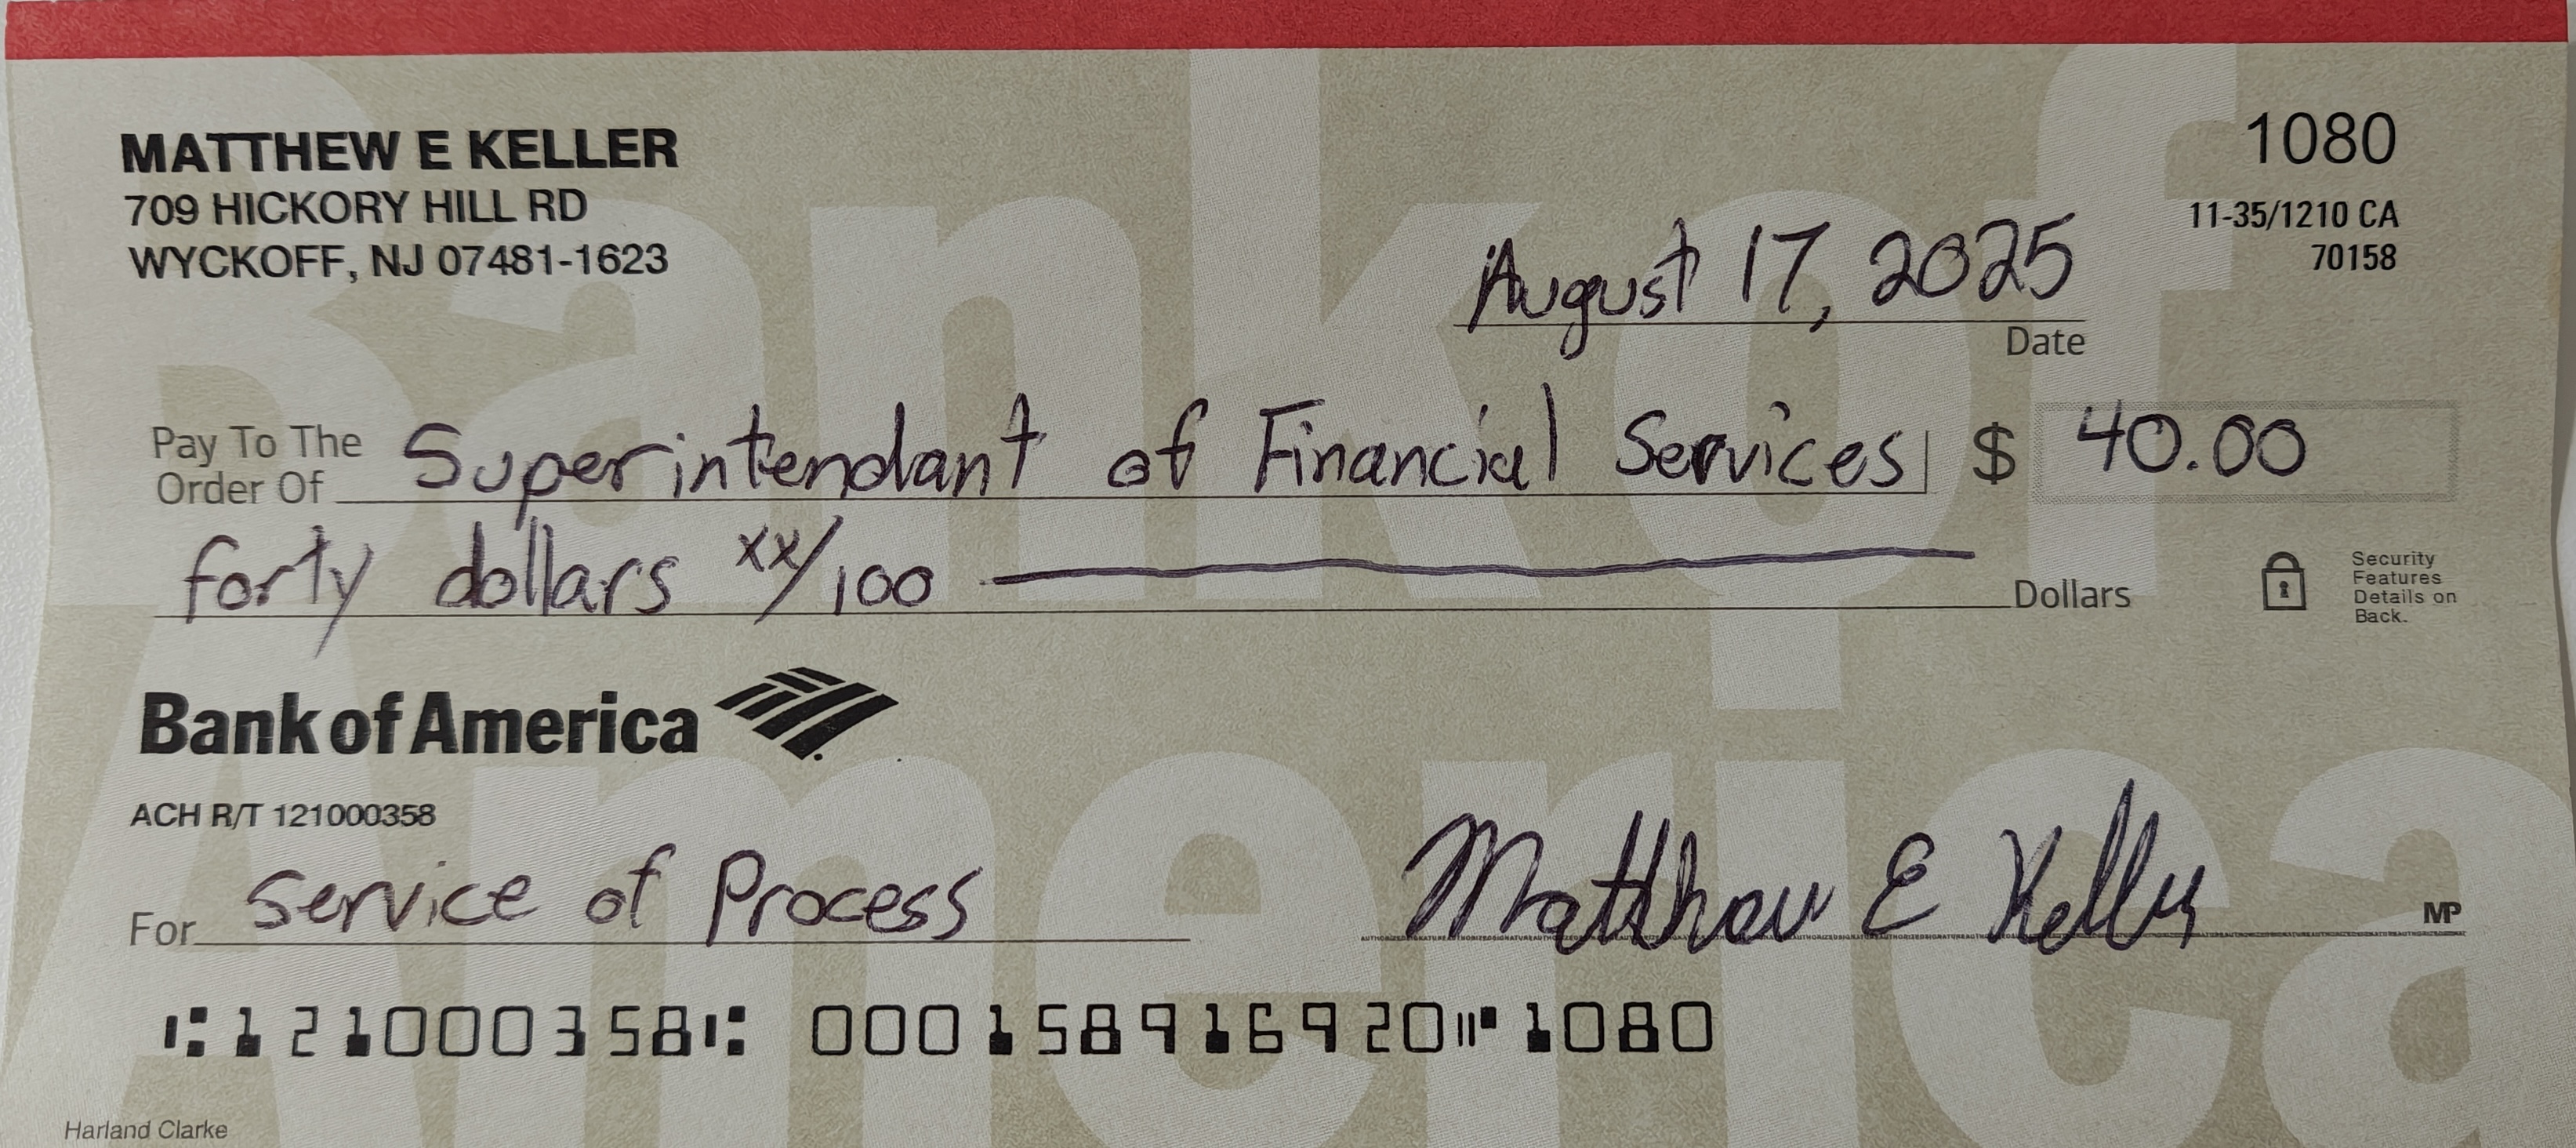 MATTHEW E KELLER
709 HICKORY HILL RD
WYCKOFF, NJ 07481-1623
1080
11-35/1210 CA
70158
August 17, 2025
Date
Pay To The
Order Of Superintendant of Financial Services $ 40.00
forty dollars xx/100 Dollars
Security
Features
Details on
Back.
Bank of America
ACH R/T 121000358
For Service of Process
Matthew E Keller
MP
⑆121000358⑆ 000158916920⑈1080
Harland Clarke
Bank of
America